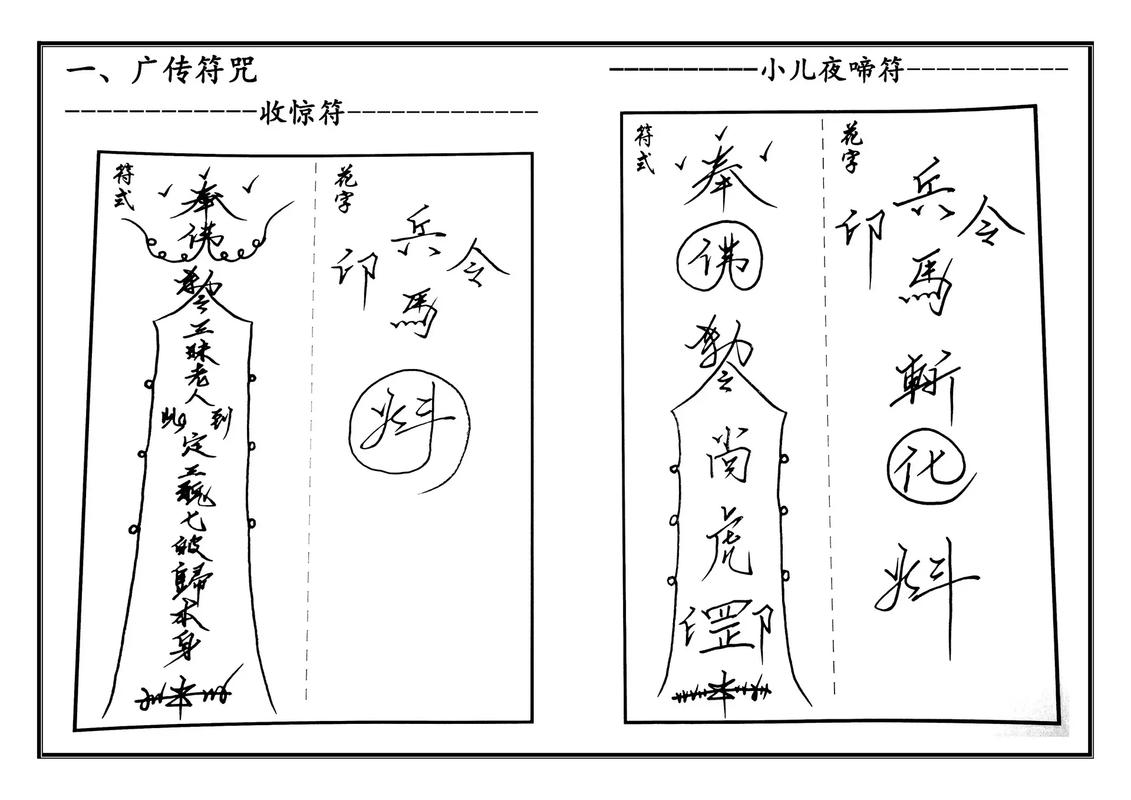 一、广传符咒
收惊符
符式
奉
佛
勅令
三昧老人
此到
定三魂七魄歸本身
花字
兵
印 令
馬
小儿夜啼符
符式
奉
佛
勅令
尚
虎
印
罡
花字
兵
印 令
馬
斬
化